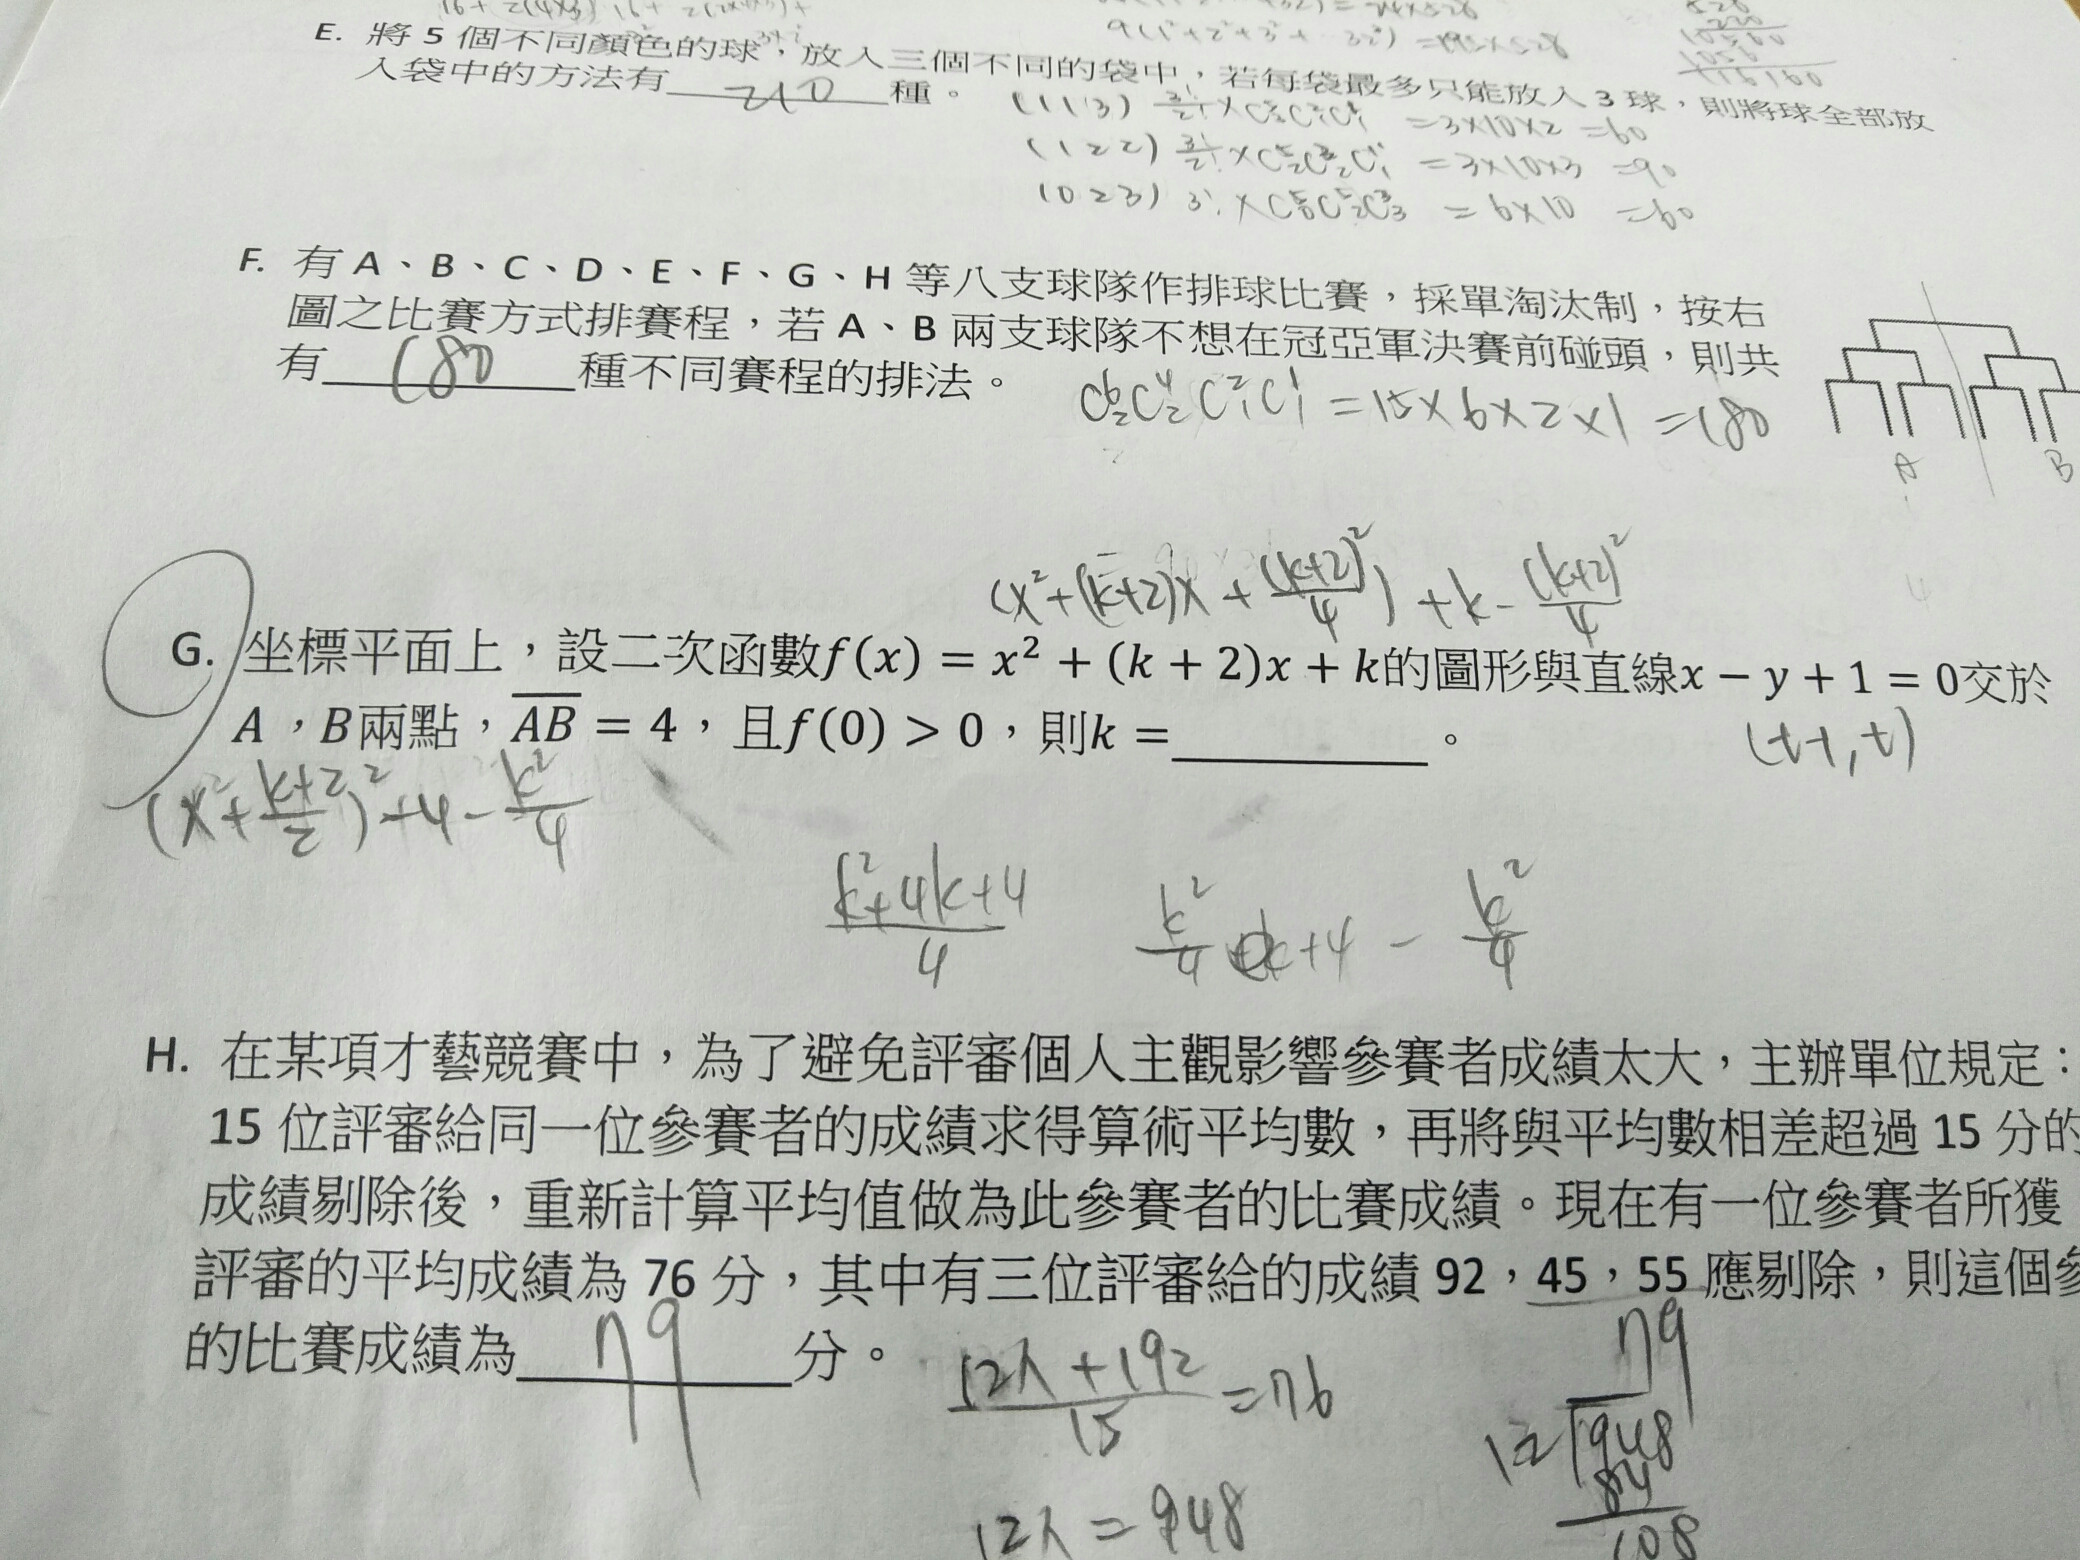 E. 將5個不同顏色的球，放入三個不同的袋中，若每袋最多只能放入3球，則將球全部放
入袋中的方法有 210 種。
(113) 3!/2! × C⁵₃C²₁C¹₁ = 3×10×2 = 60
(122) 3!/2! × C⁵₂C³₂C¹₁ = 3×10×3 = 90
(023) 3! × C⁵₀C⁵₂C³₃ = 6×10 = 60
F. 有A、B、C、D、E、F、G、H等八支球隊作排球比賽，採單淘汰制，按右
圖之比賽方式排賽程，若A、B兩支球隊不想在冠亞軍決賽前碰頭，則共
有 180 種不同賽程的排法。
C⁶₂C⁴₂C²₁C¹₁ = 15×6×2×1 = 180
A B
(x²+(k+2)x+(k+2)²/4)+k-(k+2)²/4
G. 坐標平面上，設二次函數f(x) = x² + (k + 2)x + k的圖形與直線x − y + 1 = 0交於
A，B兩點，AB = 4，且f(0) > 0，則k = 。
(t-1, t)
(x²+k+2/2)²+4-k²/4
k²+4k+4/4
k²/4 k+4 - k²/4
H. 在某項才藝競賽中，為了避免評審個人主觀影響參賽者成績太大，主辦單位規定：
15位評審給同一位參賽者的成績求得算術平均數，再將與平均數相差超過15分的
成績剔除後，重新計算平均值做為此參賽者的比賽成績。現在有一位參賽者所獲
評審的平均成績為76分，其中有三位評審給的成績92，45，55應剔除，則這個參
的比賽成績為 79 分。
12x+192/15 = 76
12x = 948
79
12 948
84
108